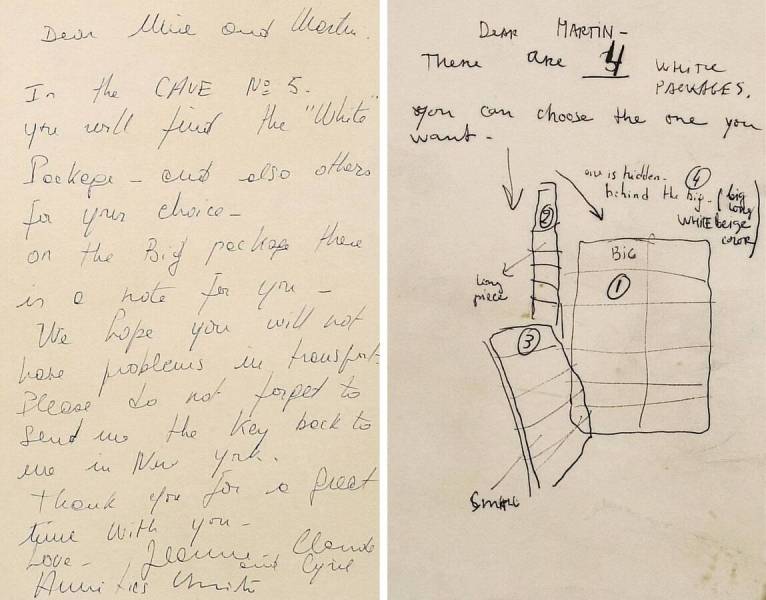 Dear Mike and Martin.
In the CAVE Nº 5.
you will find the "White"
Package - and also others
for your choice -
on the Big package there
is a note for you -
We hope you will not
have problems in transport.
Please do not forget to
send us the key back to
me in New York.
thank you for a great
time with you -
Love - Jeanne Claude
and Cyril
Christo
DEAR MARTIN -
There are 4 WHITE
PACKAGES.
you can choose the one you
want -
one is hidden - 4
behind the big - (big
long
WHITE beige
color)
2
BIG
1
long
piece
3
SMALL